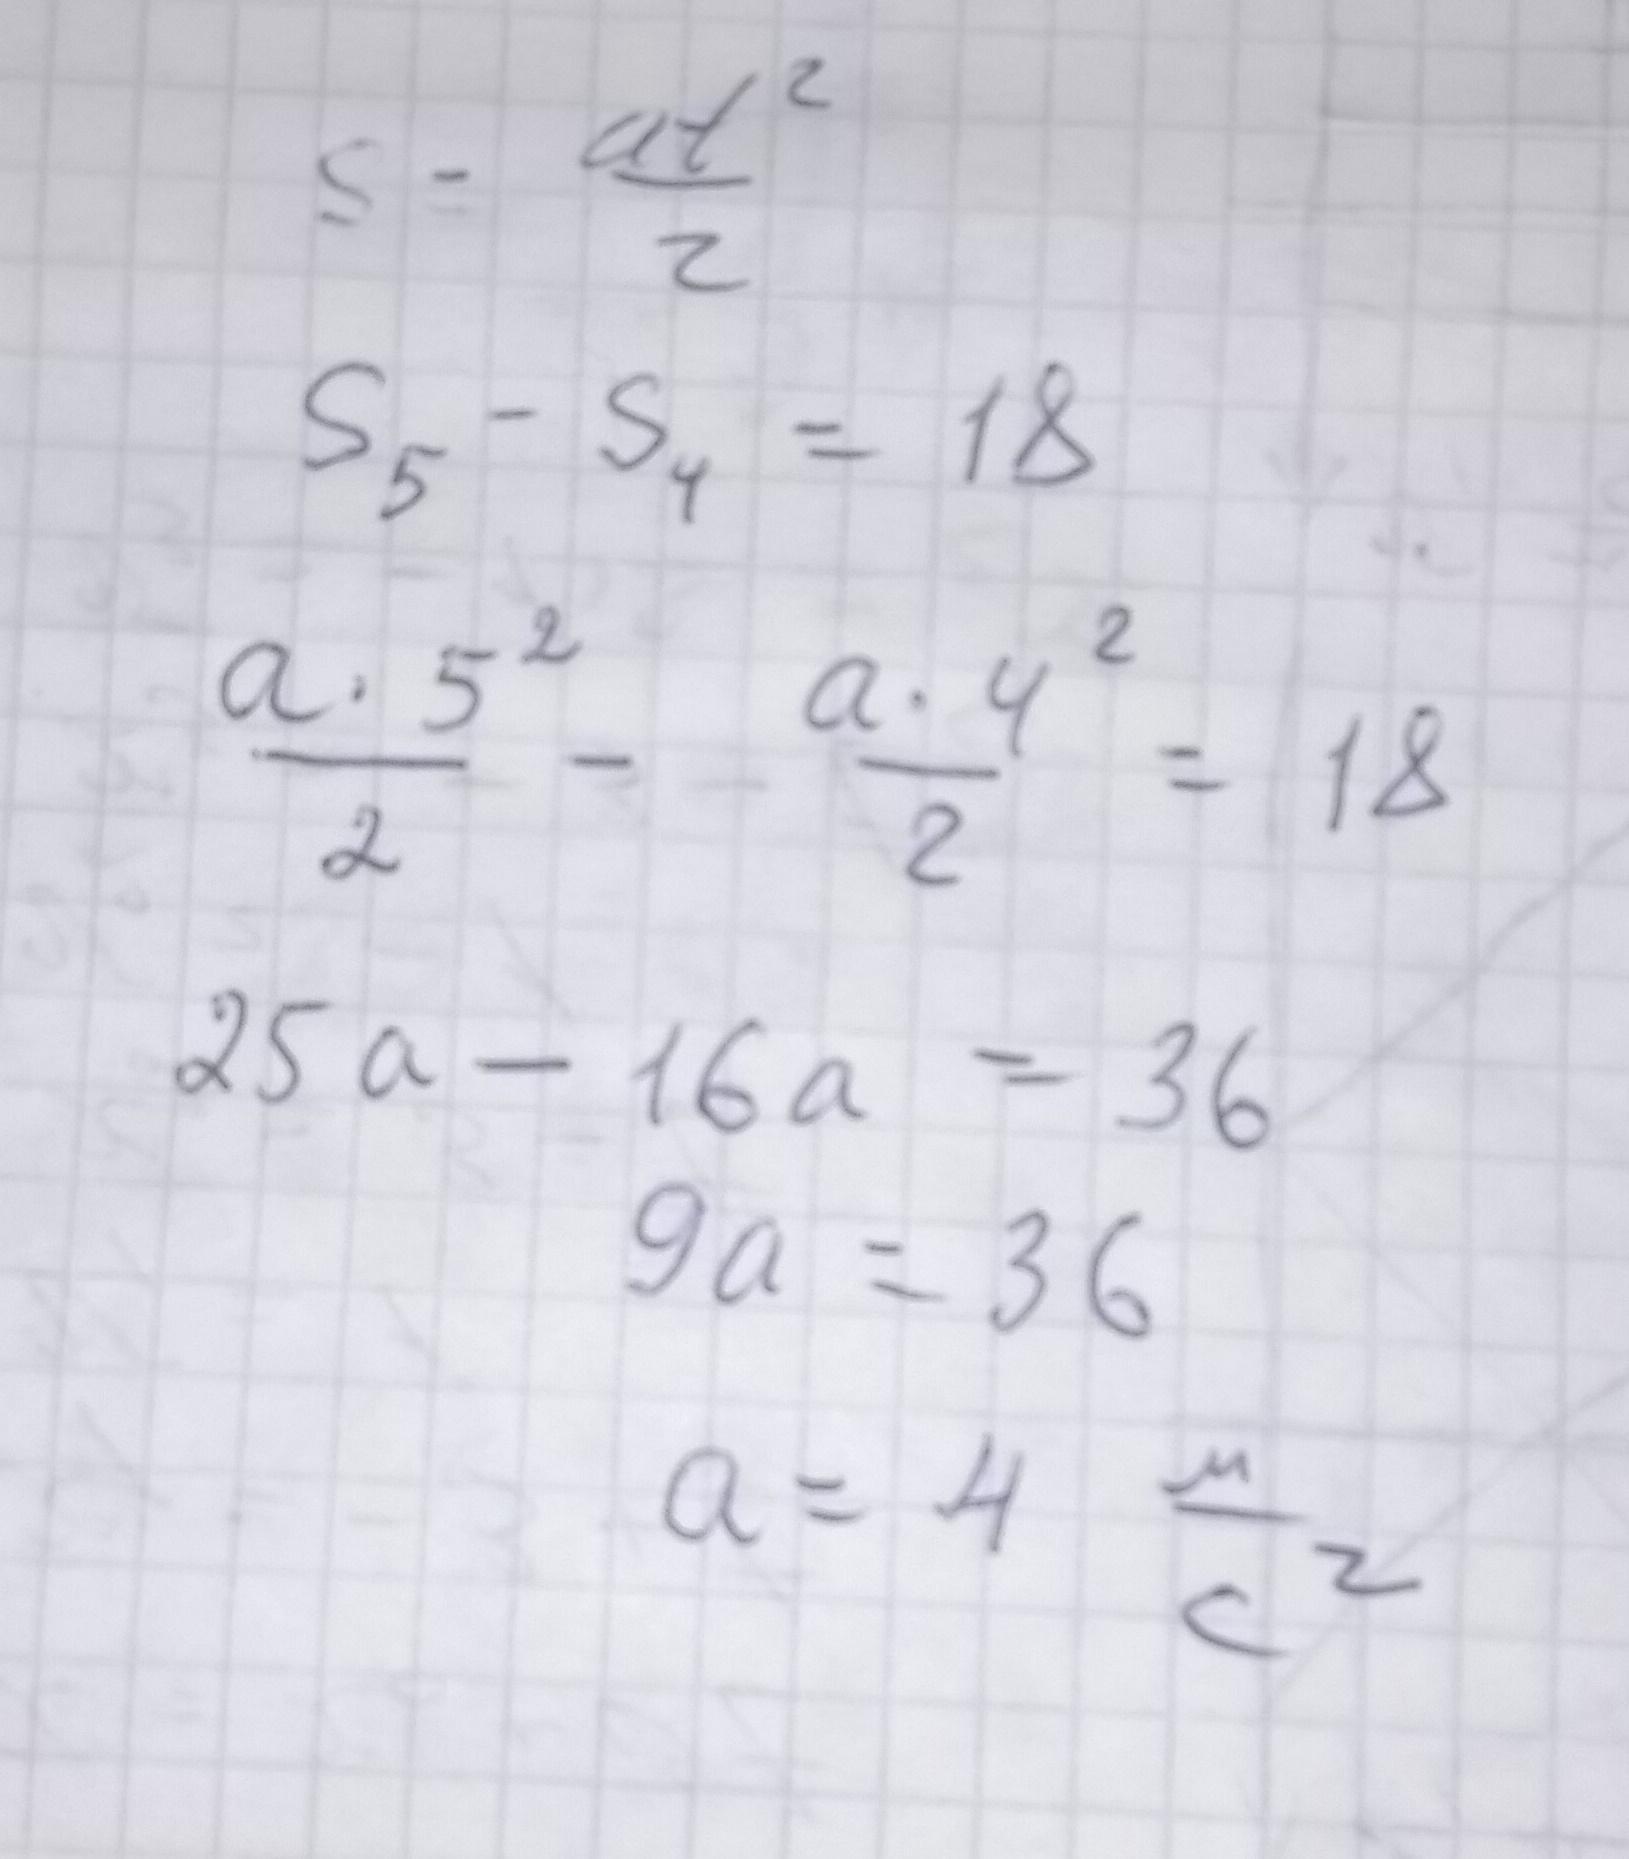 s = at²/2
S₅ - S₄ = 18
a·5²/2 - a·4²/2 = 18
25a - 16a = 36
9a = 36
a = 4 м/с²